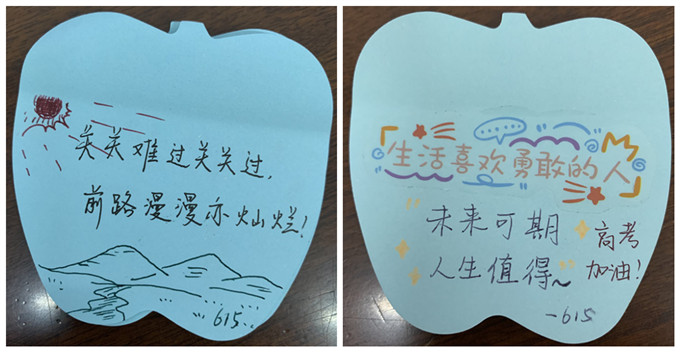 关关难过关关过，
前路漫漫亦灿烂！
615.
生活喜欢勇敢的人
未来可期
人生值得~
高考
加油！
-615